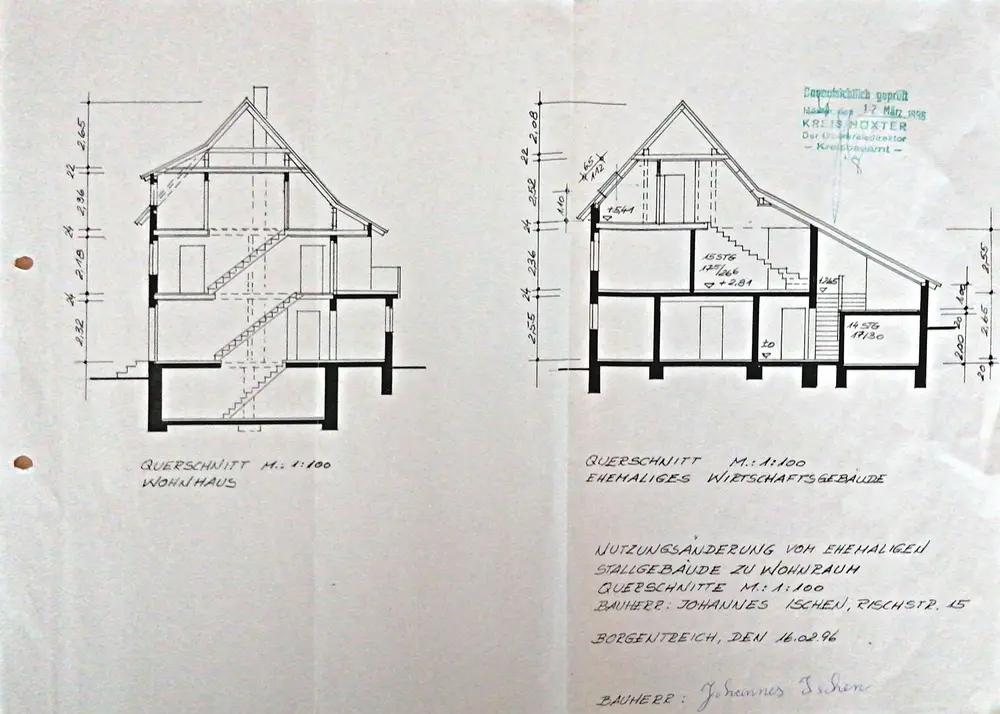 2,65
22
2,36
24
2,18
24
2,32
QUERSCHNITT M.: 1:100
WOHNHAUS
2,08
22
2,52
24
2,36
24
2,55
65
1,12
1,10
+5,41
15 STG
175/266
+2,81
±0
14 STG
17/30
2,55
1,00
20
2,65
2,00
20
geprüft
12. März 1996
KREIS HÖXTER
Der Oberkreisdirektor
- Kreisbauamt -
QUERSCHNITT M.: 1:100
EHEMALIGES WIRTSCHAFTSGEBÄUDE
NUTZUNGSÄNDERUNG VOM EHEMALIGEN
STALLGEBÄUDE ZU WOHNRAUM
QUERSCHNITTE M.: 1:100
BAUHERR: JOHANNES ISCHEN, RISCHSTR. 15
BORGENTREICH, DEN 16.02.96
BAUHERR: Johannes Ischen